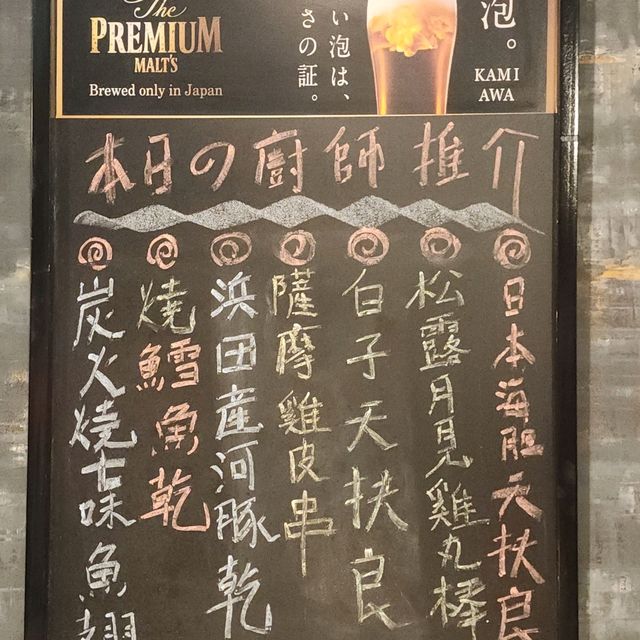 The
PREMIUM
MALT'S
Brewed only in Japan
泡。
い泡は、
さの証。
KAMI
AWA
本日の廚師推介
日本海胆天扶良
松露月見雞丸棒
白子天扶良
薩摩雞皮串
浜田産河豚乾
燒鱈魚乾
炭火燒七味魚翅